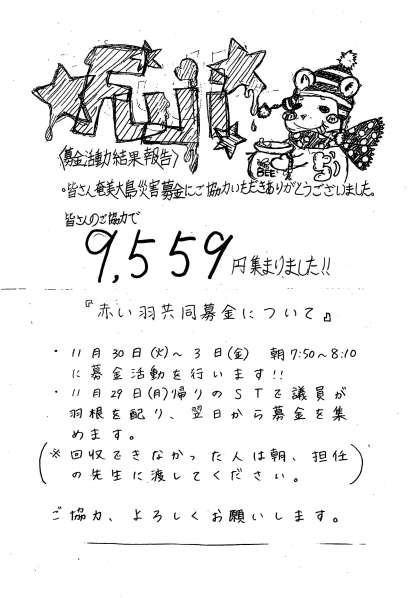 Fuji
〈募金活動結果報告〉
BEE!
・皆さん奄美大島災害募金にご協力いただきありがとうございました。
皆さんのご協力で
9,559円集まりました!!
『赤い羽共同募金について』
・11月30日(火)～3日(金) 朝7:50～8:10
に募金活動を行います!!
・11月29日(月)帰りのSTで議員が
羽根を配り、翌日から募金を集
めます。
(※回収できなかった人は朝、担任
の先生に渡してください。)
ご協力、よろしくお願いします。